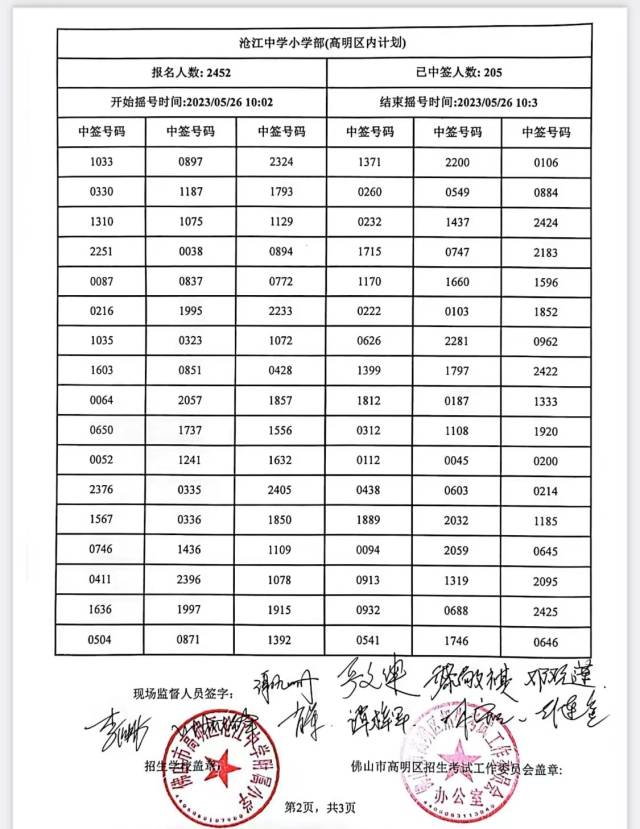 沧江中学小学部(高明区内计划)
报名人数: 2452 已中签人数: 205
开始摇号时间:2023/05/26 10:02 结束摇号时间:2023/05/26 10:3
中签号码 中签号码 中签号码 中签号码 中签号码 中签号码
1033 0897 2324 1371 2200 0106
0330 1187 1793 0260 0549 0884
1310 1075 1129 0232 1437 2424
2251 0038 0894 1715 0747 2183
0087 0837 0772 1170 1660 1596
0216 1995 2233 0222 0103 1852
1035 0323 1072 0626 2281 0962
1603 0851 0428 1399 1797 2422
0064 2057 1857 1812 0187 1333
0650 1737 1556 0312 1108 1920
0052 1241 1632 0112 0045 0200
2376 0335 2405 0438 0603 0214
1567 0336 1850 1889 2032 1185
0746 1436 1109 0094 2059 0645
0411 2396 1078 0913 1319 2095
1636 1997 1915 0932 0688 2425
0504 0871 1392 0541 1746 0646
现场监督人员签字:
招生学校盖章: 佛山市高明区招生考试工作委员会盖章:
办公室
第2页，共3页